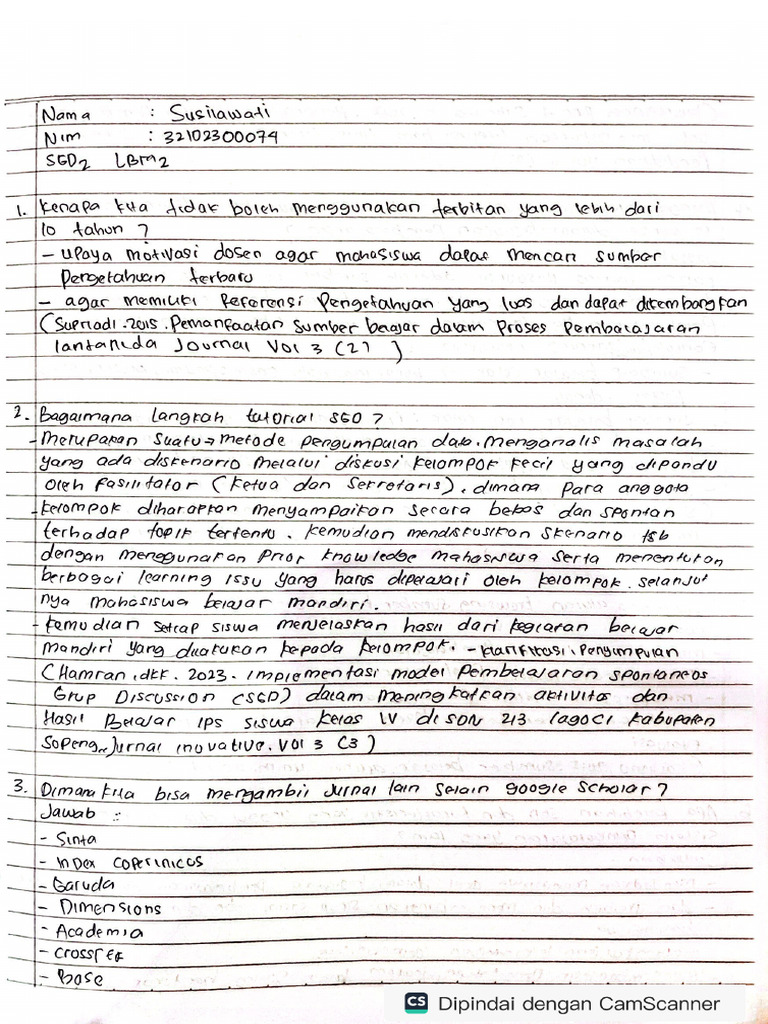 Nama : Susilawati
Nim : 32102300074
SGD2 LBM2
1. Kenapa kita tidak boleh menggunakan terbitan yang lebih dari
10 tahun ?
- upaya motivasi dosen agar mahasiswa dapat mencari sumber
Pengetahuan terbaru
- agar memiliki Referensi Pengetahuan yang luas dan dapat ditembangkan
(Supriadi . 2015 . Pemanfaatan Sumber belajar dalam Proses Pembalajaran
lantanida Journal Vol 3 (2) )
2. Bagaimana langkah tutorial SGD ?
- Merupakan Suatu metode pengumpulan data. Menganalis masalah
yang ada diskenario melalui diskusi kelompok kecil yang dipandu
oleh fasilitator (ketua dan Sekretaris). dimana Para anggota
- kelompok diharapkan menyampaikan secara bebas dan spontan
terhadap topik tertentu . kemudian mendiskusikan Skenario tsb
dengan menggunakan Prior knowledge mahasiswa serta menentukan
berbagai learning issu yang harus dipelajari oleh kelompok. selanjut
nya mahasiswa belajar mandiri.
- kemudian setiap siswa menjelaskan hasil dari kegiatan belajar
mandiri yang dilakukan kepada kelompok. - klarifikasi, Penyimpulan
(Hamran, dkk. 2023. implementasi model Pembelajaran spontaneos
Grup Discussion (SGD) dalam meningkatkan aktivitas dan
Hasil Belajar IPS siswa kelas IV di SDN 213 lagoci kabupaten
Sopeng. Jurnal inovative. Vol 3 (3)
3. Dimana kita bisa mengambil Jurnal lain selain google scholar ?
Jawab :
- Sinta
- Index copernicos
- Garuda
- Dimensions
- Academia
- Crossref
- Base
CS Dipindai dengan CamScanner